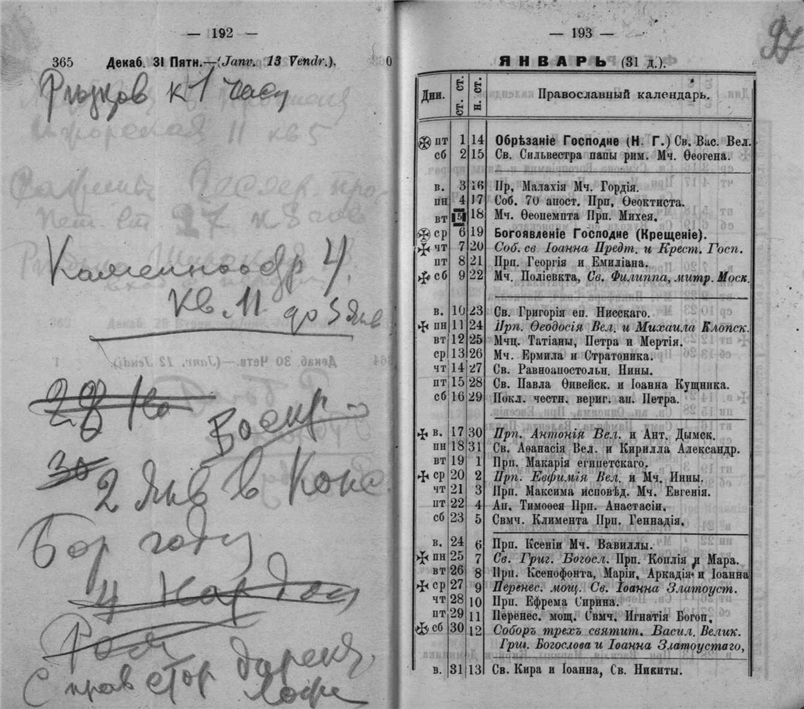 — 192 —
365 Декаб. 31 Пятн.—(Janv. 13 Vendr.).
к 1 часу
Каменноостр 4.
кв. 11 до 3 янв
28
Воскр
30
2 янв в Конс
году
Справ
— 193 —
97
ЯНВАРЬ (31 д.).
Дни. ст. ст. н. ст. Православный календарь.
пт 1 14 Обрѣзаніе Господне (Н. Г.) Св. Вас. Вел.
сб 2 15 Св. Сильвестра папы рим. Мч. Ѳеогена.
в. 3 16 Пр, Малахія Мч. Гордія.
пн 4 17 Соб. 70 апост. Прп. Ѳеоктиста.
вт 5 18 Мч. Ѳеопемпта Прп. Михея.
ср 6 19 Богоявленіе Господне (Крещеніе).
чт 7 20 Соб. св Іоанна Предт. и Крест. Госп.
пт 8 21 Прп. Георгія и Емиліана.
сб 9 22 Мч. Поліевкта, Св. Филиппа, митр. Моск.
в. 10 23 Св. Григорія еп. Нисскаго.
пн 11 24 Прп. Ѳеодосія Вел. и Михаила Клопск.
вт 12 25 Мчц. Татіаны, Петра и Мертія.
ср 13 26 Мч. Ермила и Стратоника.
чт 14 27 Св. Равноапостольн. Нины.
пт 15 28 Св. Павла Ѳивейск. и Іоанна Кущника.
сб 16 29 Покл. честн. вериг. ап. Петра.
в. 17 30 Прп. Антонія Вел. и Ант. Дымск.
пн 18 31 Св. Аѳанасія Вел. и Кирилла Александр.
вт 19 1 Прп. Макарія египетскаго.
ср 20 2 Прп. Евфимія Вел. и Мч. Инны.
чт 21 3 Прп. Максима исповѣд. Мч. Евгенія.
пт 22 4 Ап. Тимоѳея Прп. Анастасіи.
сб 23 5 Свмч. Климента Прп. Геннадія.
в. 24 6 Прп. Ксеніи Мч. Вавиллы.
пн 25 7 Св. Григ. Богосл. Прп. Коплія и Мара.
вт 26 8 Прп. Ксенофонта, Маріи, Аркадія и Іоанна
ср 27 9 Перенес. мощ. Св. Іоанна Златоуст.
чт 28 10 Прп. Ефрема Сирина.
пт 29 11 Перенес. мощ. Свмч. Игнатія Богон.
сб 30 12 Соборъ трехъ святит. Васил. Велик.
Григ. Богослова и Іоанна Златоустаго,
в. 31 13 Св. Кира и Іоанна, Св. Никиты.